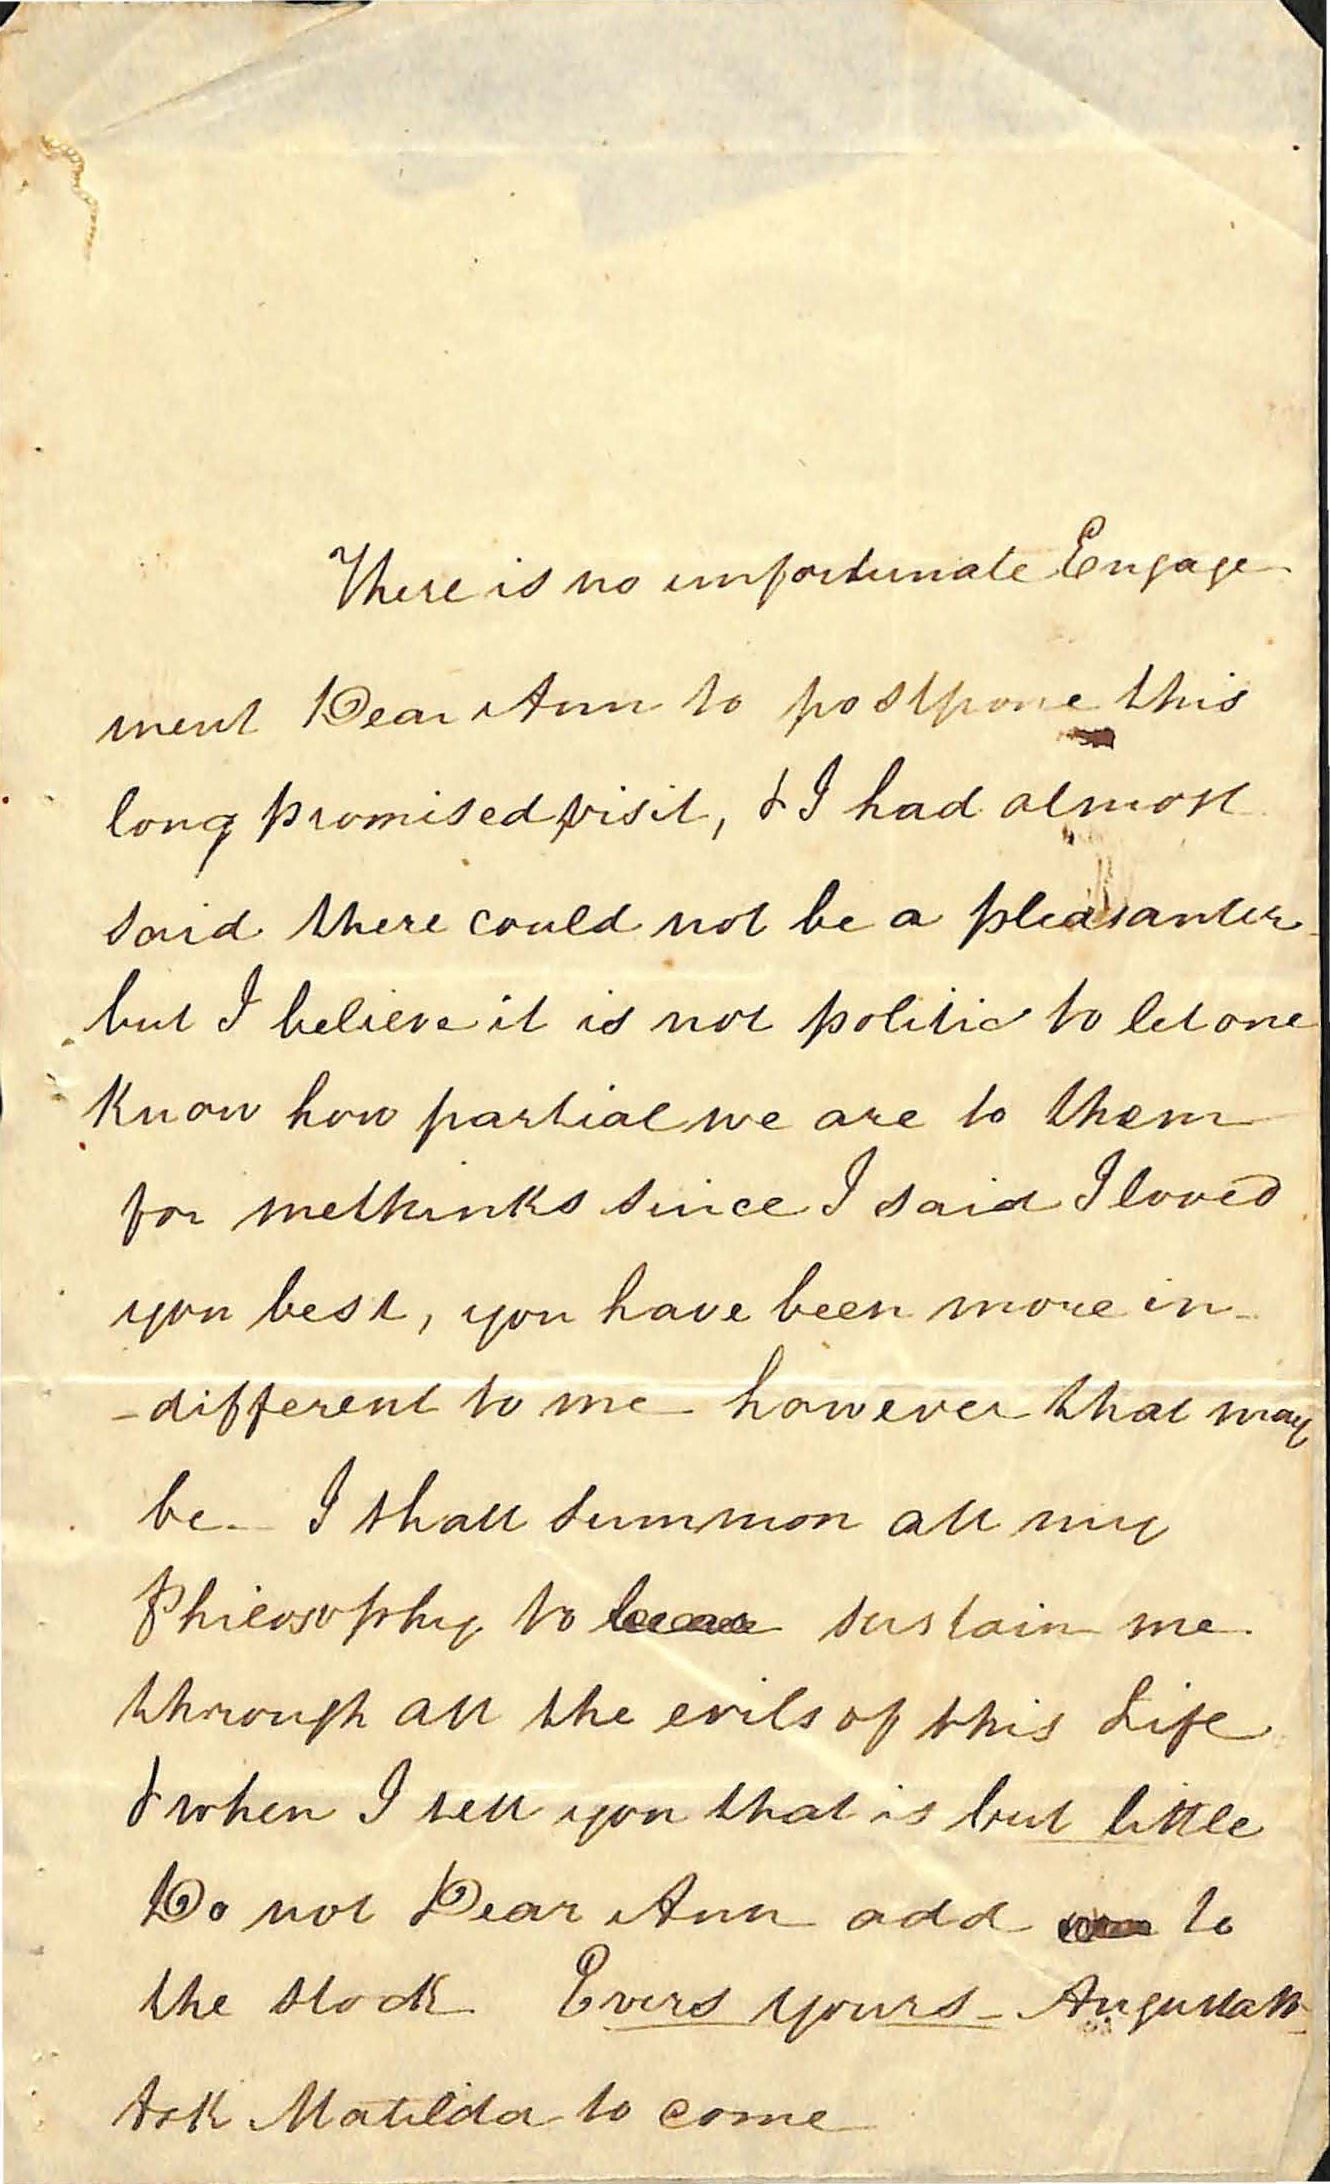 There is no unfortunate Engage
ment Dear Ann to postpone this
long promised visit, & I had almost
said there could not be a pleasanter
but I believe it is not politic to let one
know how partial we are to them
for methinks since I said I loved
you best, you have been more in-
-different to me however that may
be - I shall summon all my
Philosophy to sustain me
through all the evils of this Life
& when I tell you that is but little
Do not Dear Ann add to
the stock Evers yours - Augusta
Ask Matilda to come